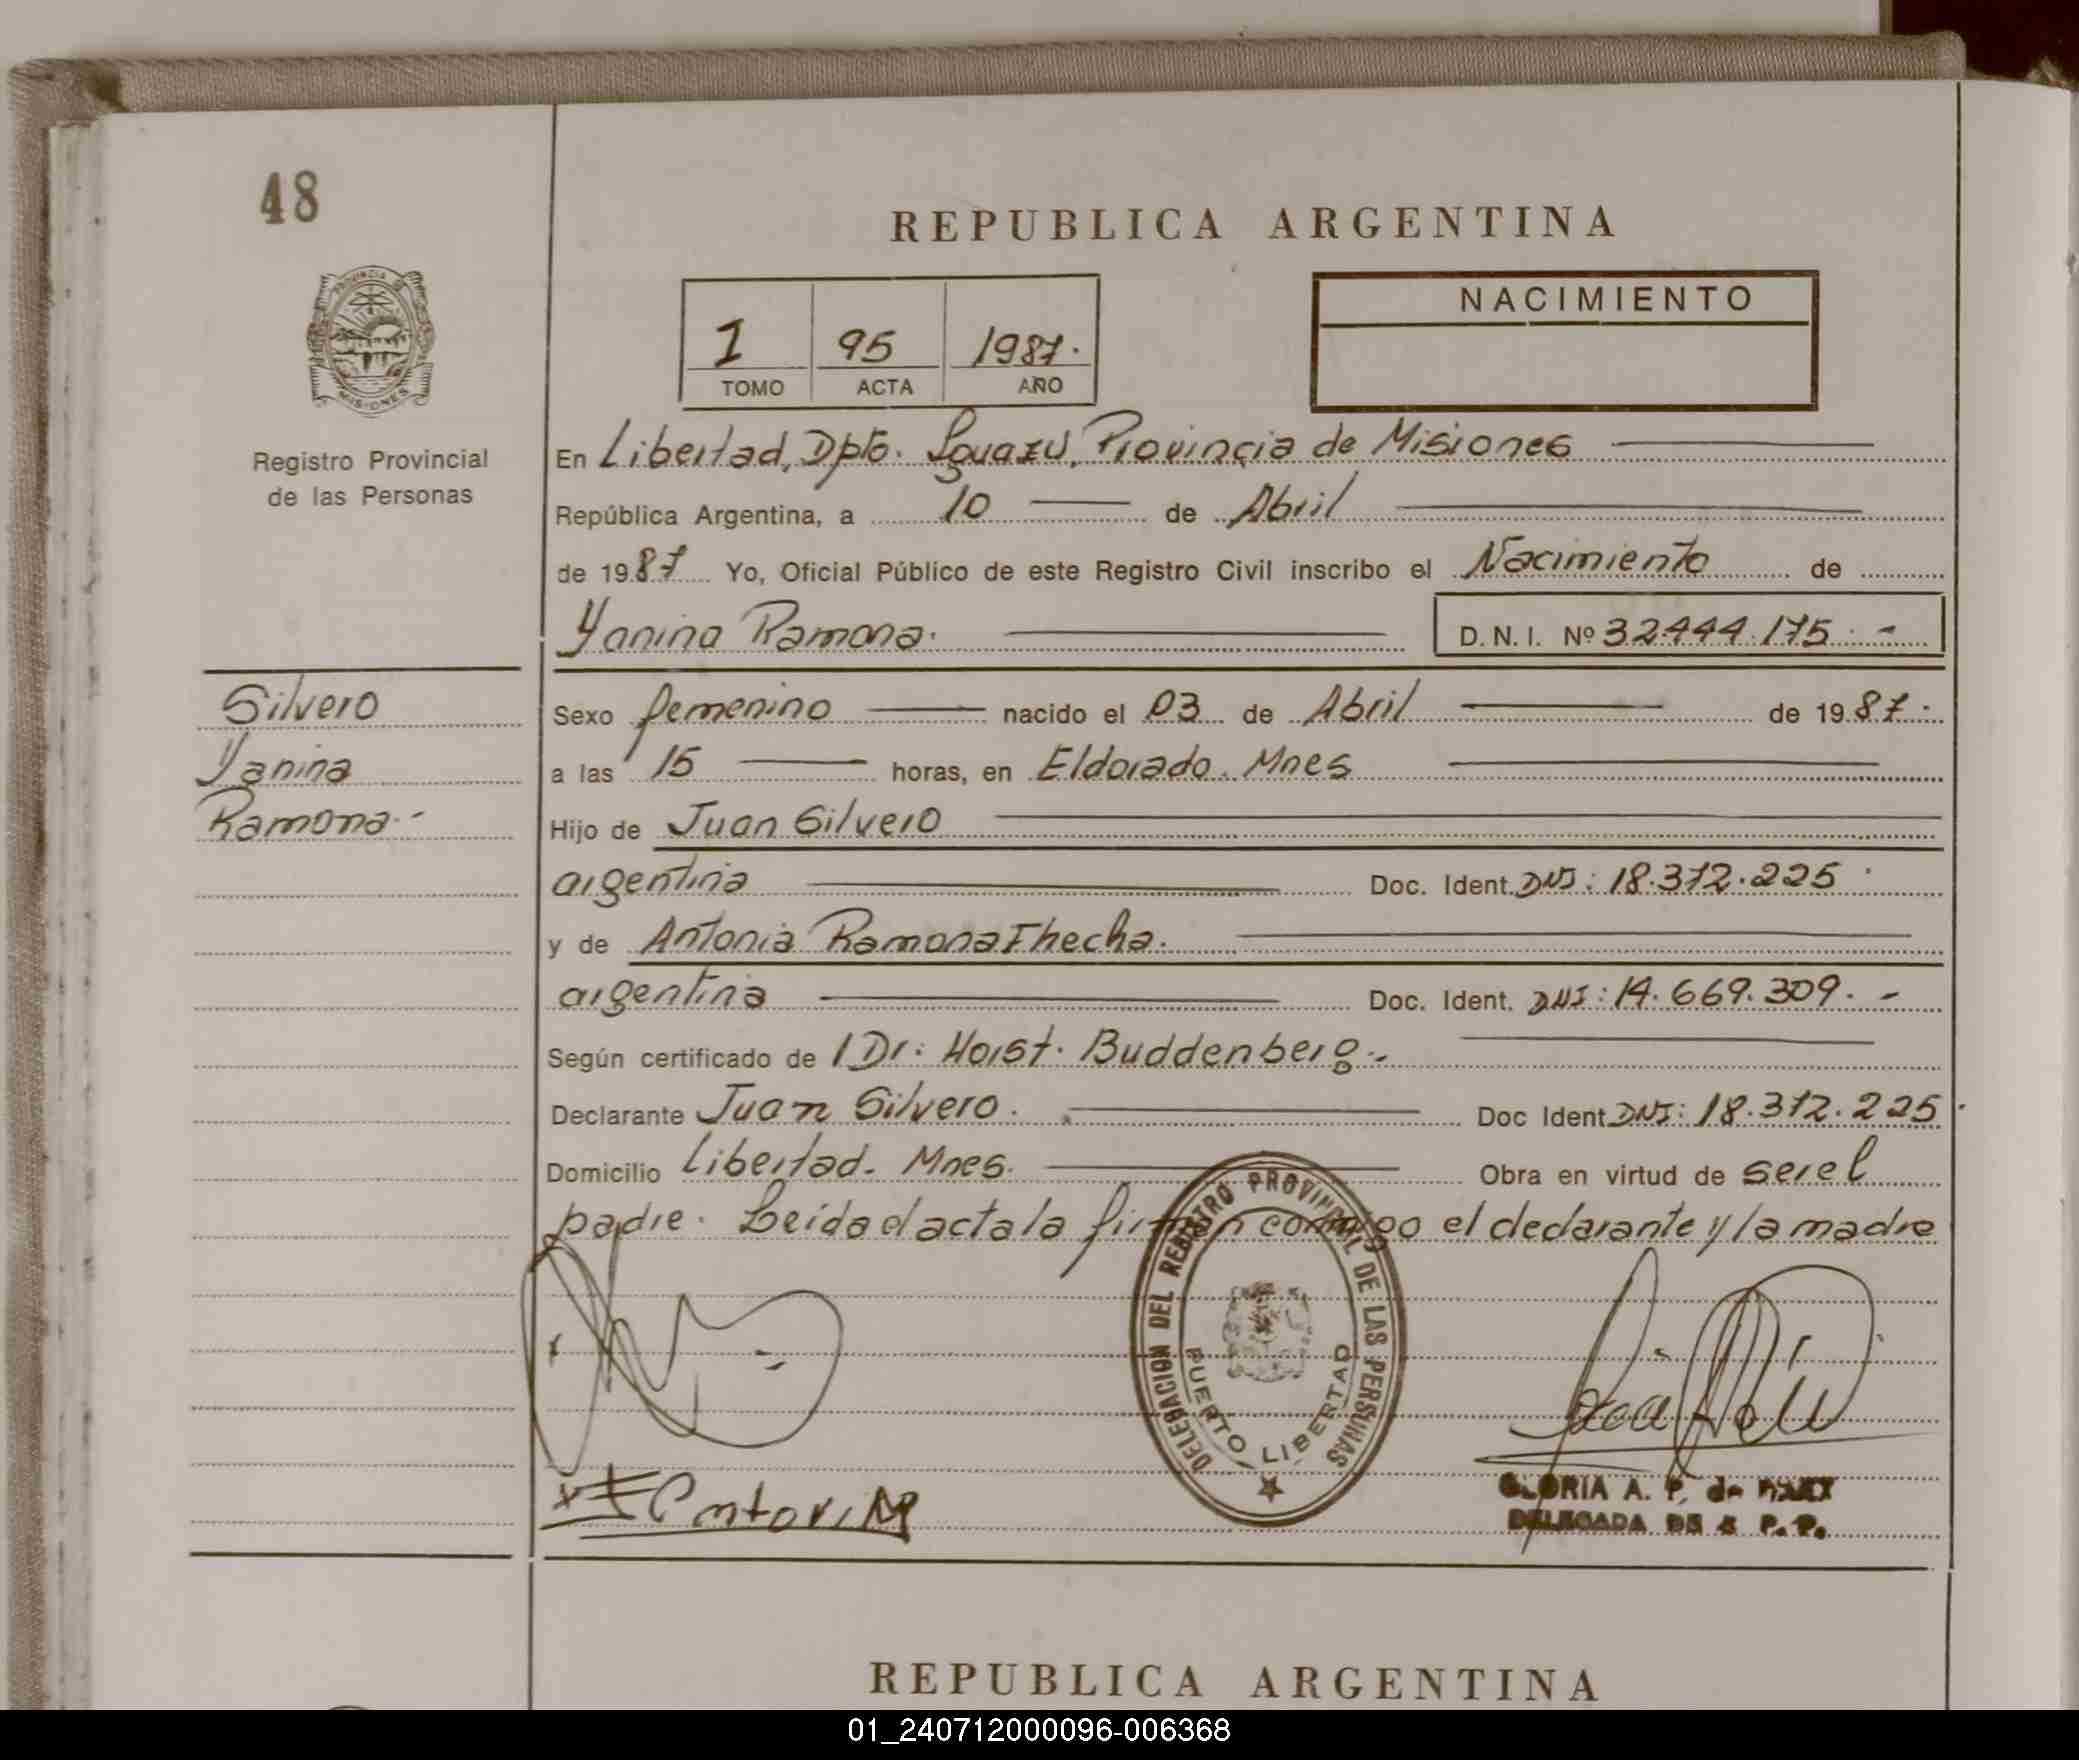 48
REPUBLICA ARGENTINA
PROVINCIA D
MISIONES
Registro Provincial
de las Personas
NACIMIENTO
I 95 1987.
TOMO ACTA AÑO
En Libertad, Dpto. Iguazú, Provincia de Misiones
República Argentina, a 10 de Abril
de 1987 Yo, Oficial Público de este Registro Civil inscribo el Nacimiento de
Yanina Ramona. D. N. I. Nº 32.444.175.-
Silvero
Yanina
Ramona.-
Sexo femenino nacido el 03 de Abril de 1987.
a las 15 horas, en Eldorado. Mnes
Hijo de Juan Silvero
argentina Doc. Ident. DNI: 18.372.225
y de Antonia Ramona Ihecha.
argentina Doc. Ident. DNI: 14.669.309.-
Según certificado de Dr. Horst. Buddenberg.-
Declarante Juan Silvero. Doc Ident. DNI: 18.372.225.
Domicilio Libertad. Mnes. Obra en virtud de ser el
padre. Leida el acta la firman conmigo el declarante y la madre
DELEGACION DEL REGISTRO PROVINCIAL DE LAS PERSONAS
PUERTO LIBERTAD
GLORIA A. P. de
DELEGADA DE R. P. P.
REPUBLICA ARGENTINA
01_240712000096-006368